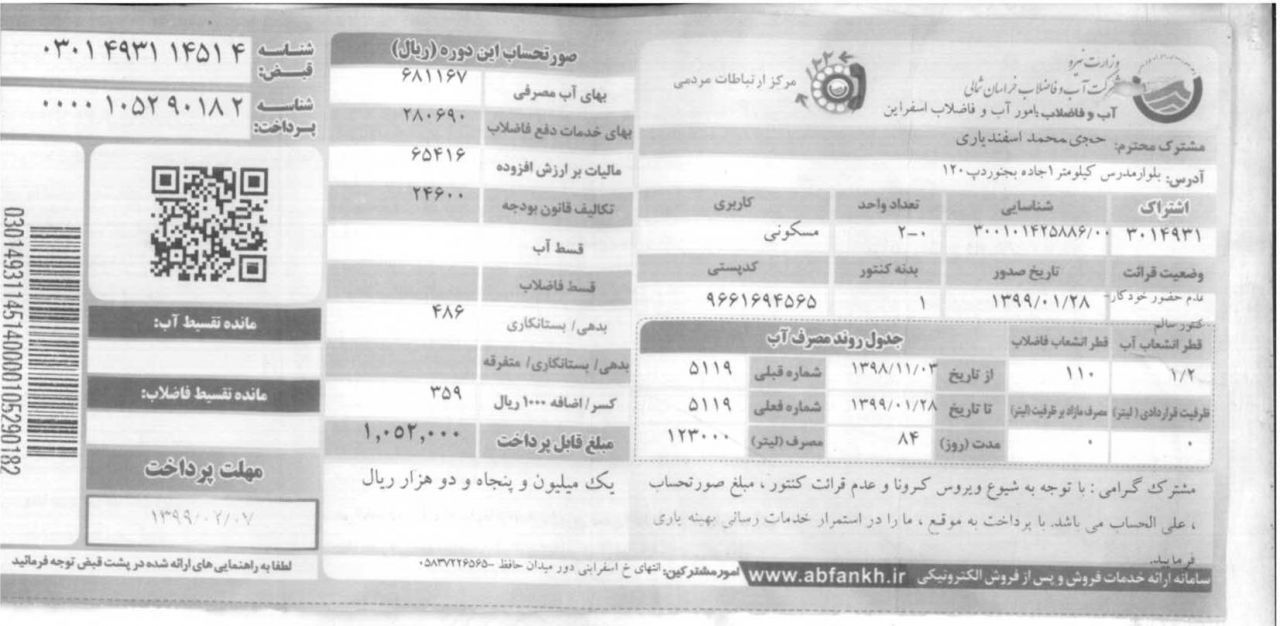 وزارت نیرو
شرکت آب و فاضلاب خراسان شمالی
آب و فاضلاب: امور آب و فاضلاب اسفراین
۱۲۲
مرکز ارتباطات مردمی
مشترک محترم: حجی محمد اسفندیاری
آدرس: بلوارمدرس کیلومتر ۱جاده بجنوردپ ۱۲۰
اشتراک شناسایی تعداد واحد کاربری
۳۰۱۴۹۳۱ ۳۰۰۱۰۱۴۲۵۸۸۶/۰۰ ۲-۰ مسکونی
وضعیت قرائت تاریخ صدور بدنه کنتور کدپستی
عدم حضور خودکار- ۱۳۹۹/۰۱/۲۸ ۱ ۹۶۶۱۶۹۴۵۶۵
کنتور سالم
قطر انشعاب آب قطر انشعاب فاضلاب جدول روند مصرف آب
۱/۲ ۱۱۰ از تاریخ ۱۳۹۸/۱۱/۰۳ شماره قبلی ۵۱۱۹
ظرفیت قراردادی (لیتر) مصرف مازاد بر ظرفیت (لیتر) تا تاریخ ۱۳۹۹/۰۱/۲۸ شماره فعلی ۵۱۱۹
۰ ۰ مدت (روز) ۸۴ مصرف (لیتر) ۱۲۳۰۰۰
مشترک گرامی : با توجه به شیوع ویروس کرونا و عدم قرائت کنتور ، مبلغ صورتحساب
، علی الحساب می باشد. با پرداخت به موقع ، ما را در استمرار خدمات رسانی بهینه یاری
فرمایید.
سامانه ارائه خدمات فروش و پس از فروش الکترونیکی www.abfankh.ir امور مشترکین: انتهای خ اسفراینی دور میدان حافظ -۰۵۸۳۷۲۲۶۵۶۵
صورتحساب این دوره (ریال)
بهای آب مصرفی ۶۸۱۱۶۷
بهای خدمات دفع فاضلاب ۲۸۰۶۹۰
مالیات بر ارزش افزوده ۶۵۴۱۶
تکالیف قانون بودجه ۲۴۶۰۰
قسط آب
قسط فاضلاب
بدهی/ بستانکاری ۴۸۶
بدهی/ بستانکاری/ متفرقه
کسر/ اضافه ۱۰۰۰ ریال ۳۵۹
مبلغ قابل پرداخت ۱,۰۵۲,۰۰۰
یک میلیون و پنجاه و دو هزار ریال
شناسه قبض: ۰۳۰۱۴۹۳۱۱۴۵۱۴
شناسه پرداخت: ۰۰۰۰۱۰۵۲۹۰۱۸۲
مانده تقسیط آب:
مانده تقسیط فاضلاب:
مهلت پرداخت
۱۳۹۹/۰۲/۰۷
لطفا به راهنمایی های ارائه شده در پشت قبض توجه فرمائید
03014931145140000105290182